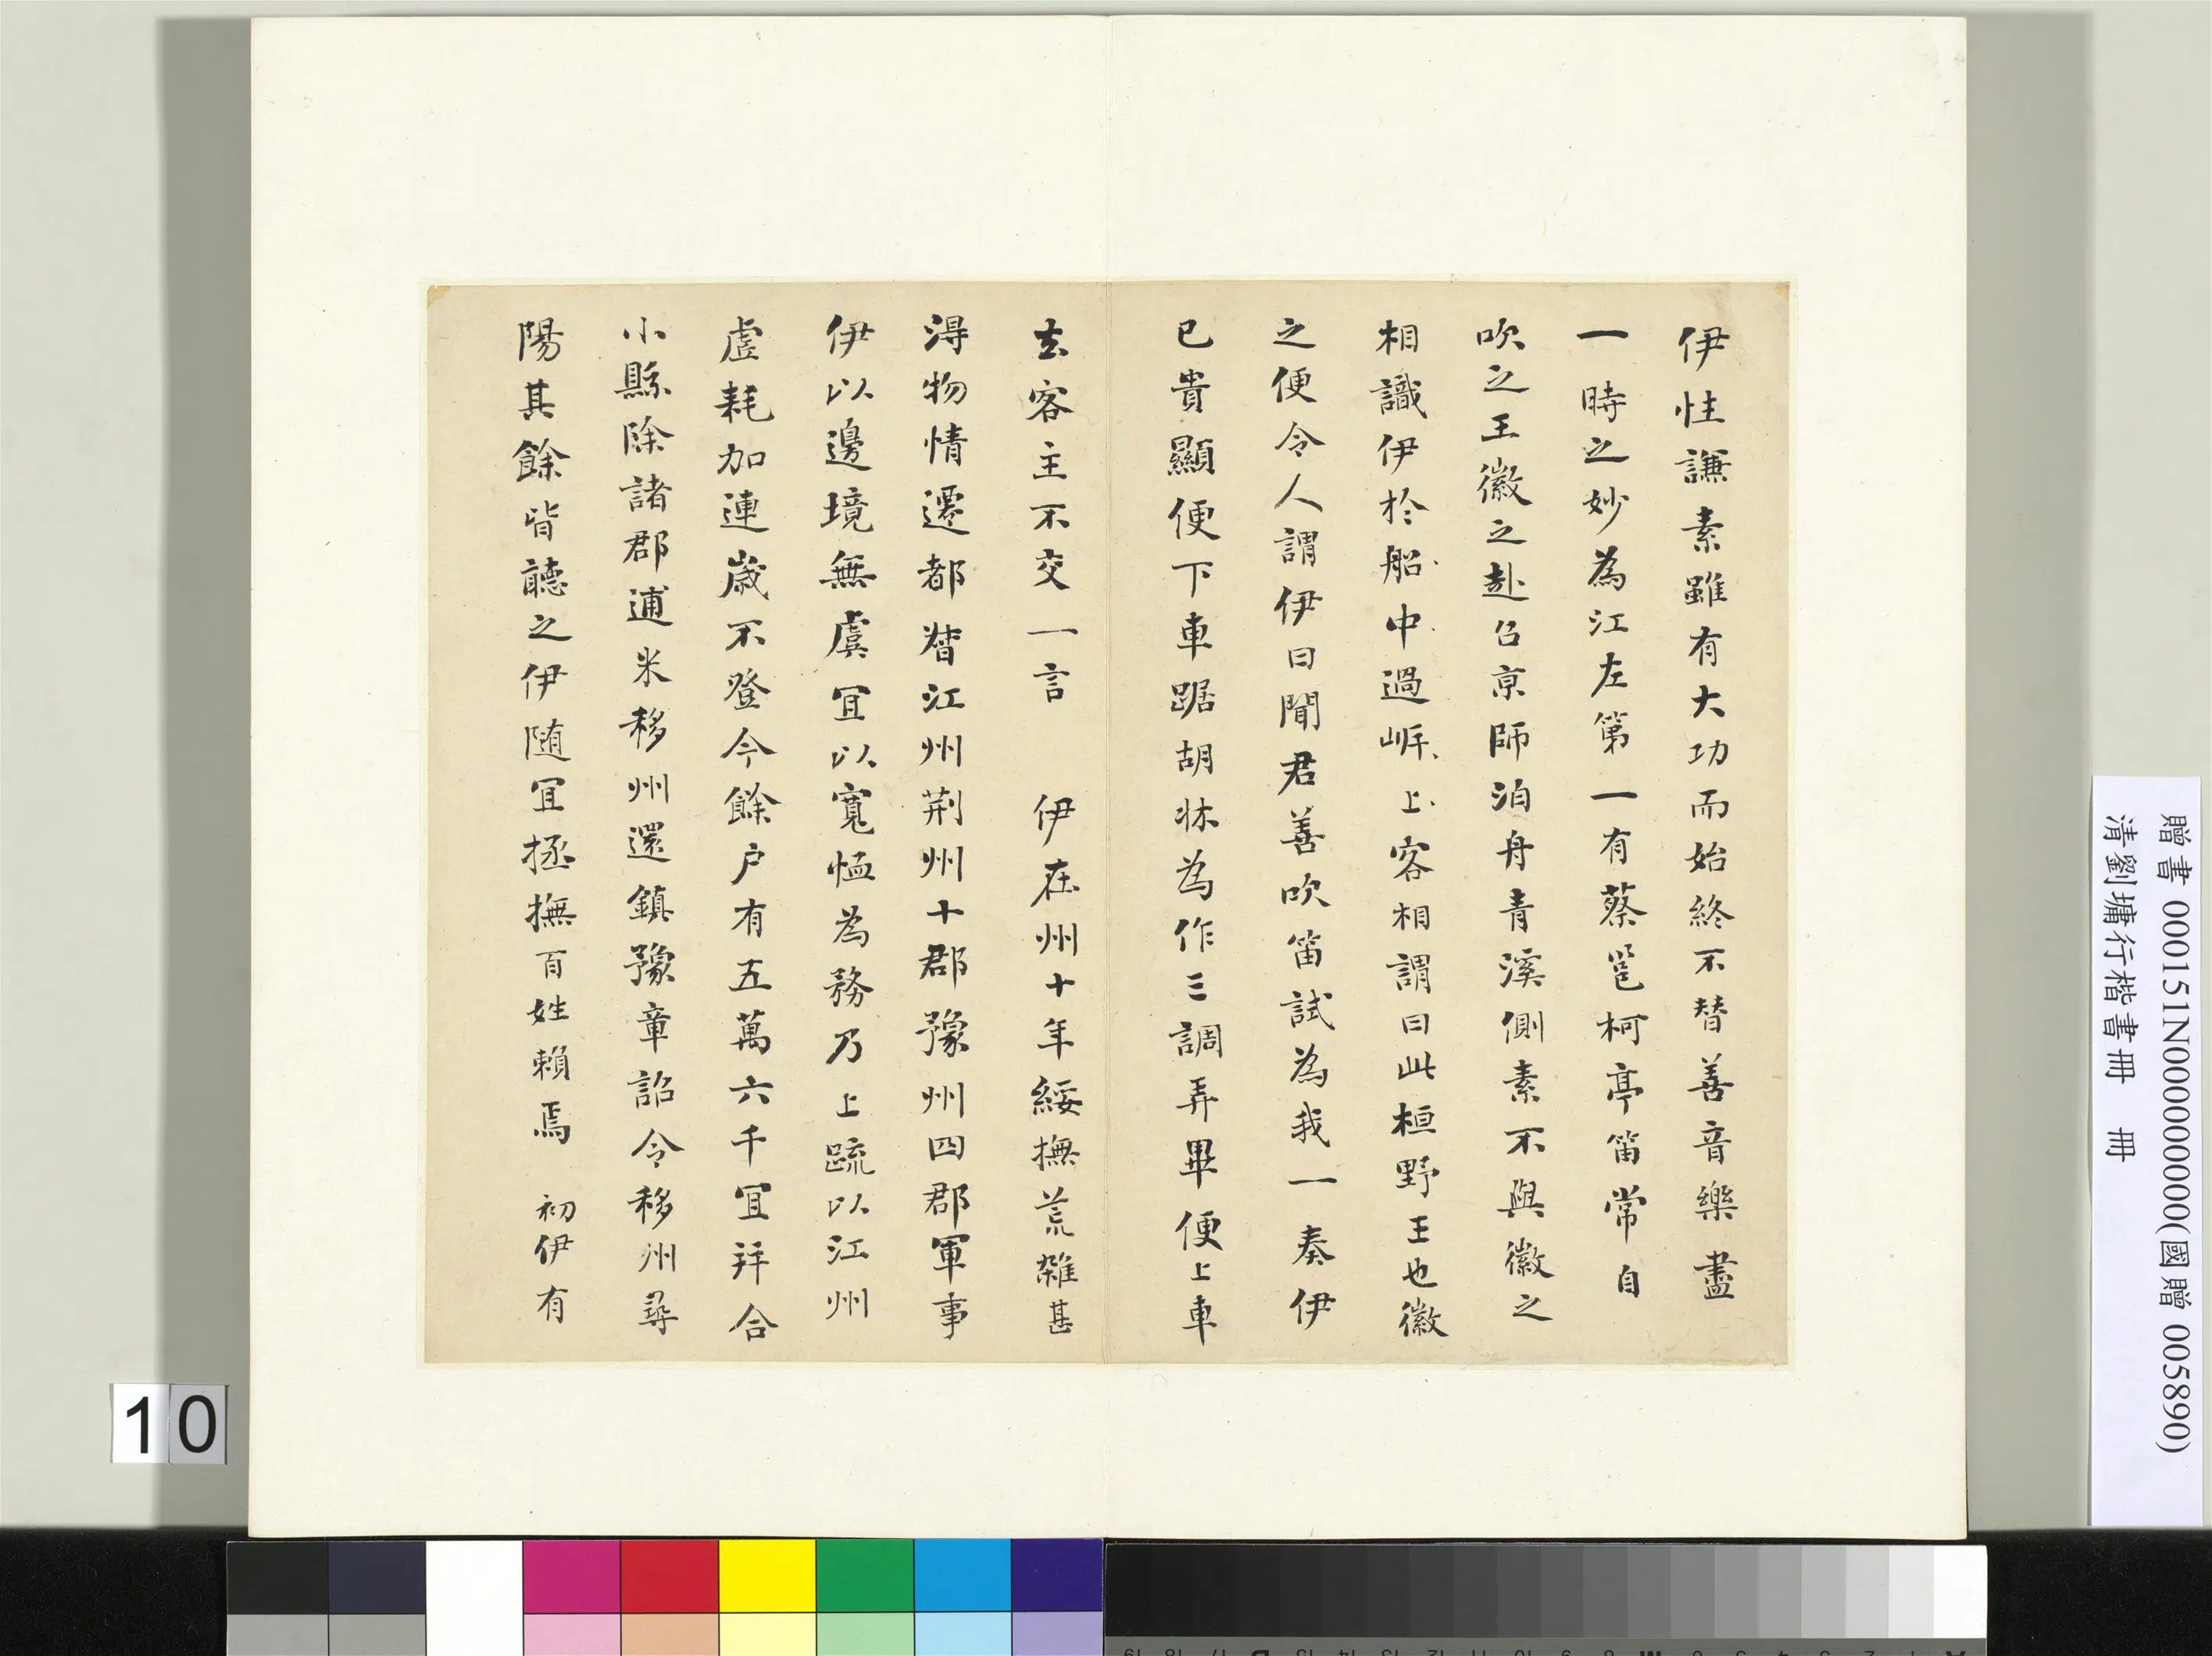 伊性謙素雖有大功而始終不替善音樂盡
一時之妙為江左第一有蔡邕柯亭笛常自
吹之王徽之赴召京師泊舟青溪側素不與徽之
相識伊於船中過岸上客相謂曰此桓野王也徽
之便令人謂伊曰聞君善吹笛試為我一奏伊
已貴顯便下車踞胡牀為作三調弄畢便上車
去客主不交一言 伊在州十年綏撫荒雜甚
得物情遷都督江州荊州十郡豫州四郡軍事
伊以邊境無虞宜以寬恤為務乃上疏以江州
虛耗加連歲不登今餘户有五萬六千宜并合
小縣除諸郡逋米移州還鎮豫章詔令移州尋
陽其餘皆聽之伊隨宜拯撫百姓賴焉 初伊有
贈書 000151N000000000(國贈 005890)
清劉墉行楷書冊 冊
10